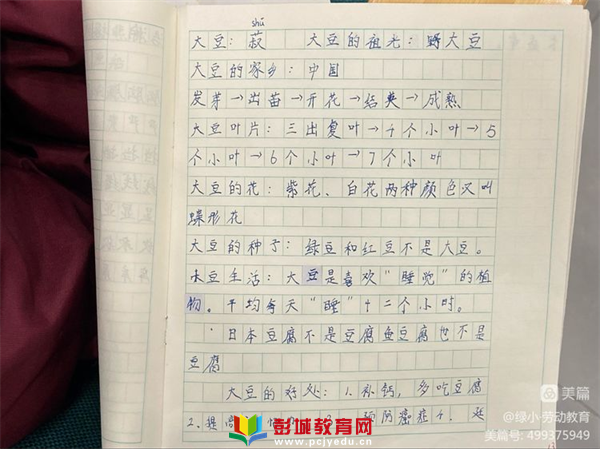 shū
大豆：菽 大豆的祖先：野大豆
大豆的家乡：中国
发芽→出苗→开花→结荚→成熟
大豆叶片：三出复叶→4个小叶→5
个小叶→6个小叶→7个小叶
大豆的花：紫花、白花两种颜色又叫
蝶形花
大豆的种子：绿豆和红豆不是大豆。
大豆生活：大豆是喜欢“睡觉”的植
物。平均每天“睡”十二个小时。
日本豆腐不是豆腐鱼豆腐也不是
豆腐
大豆的好处：1.补钙，多吃豆腐
2.提高 预防癌症4.
彭城教育网
www.pcjyedu.cn
美篇
@绿小·劳动教育
美篇号: 499375949